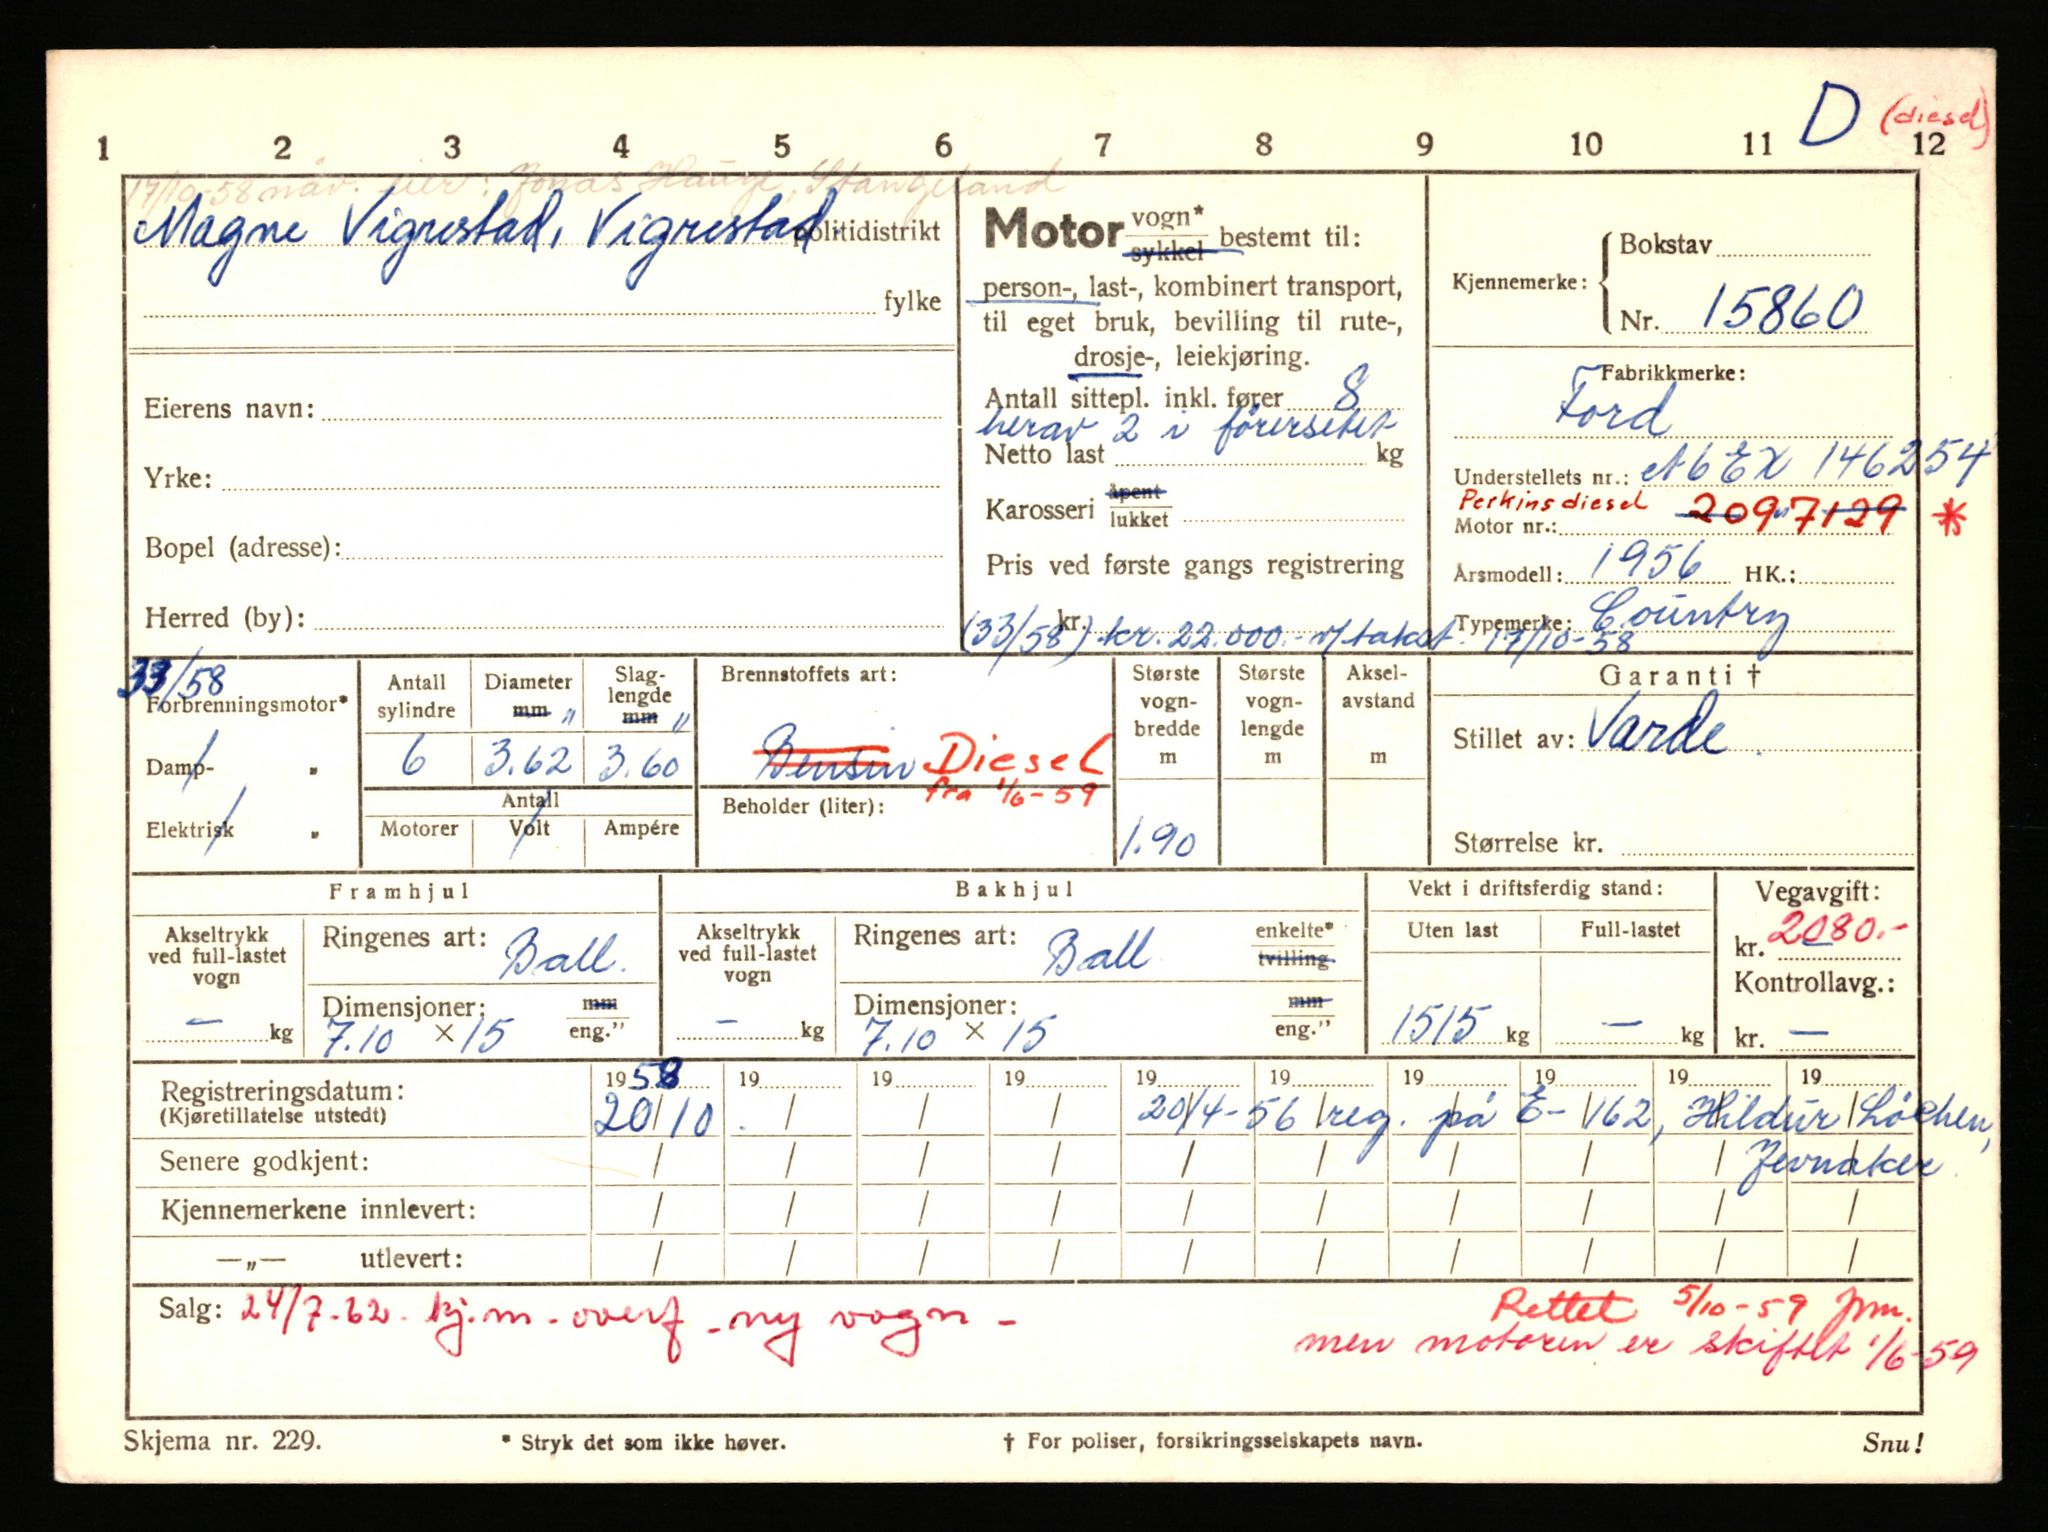 D (diesel)
1 2 3 4 5 6 7 8 9 10 11 12
17/10-58 nåv. eier: Jonas Hauge, Stangeland
Magne Vigrestad, Vigrestad politidistrikt
fylke
Eierens navn:
Yrke:
Bopel (adresse):
Herred (by):
Motor vogn* sykkel bestemt til:
person-, last-, kombinert transport,
til eget bruk, bevilling til rute-,
drosje-, leiekjøring.
Antall sittepl. inkl. fører 8
herav 2 i førersetet
Netto last kg
Karosseri åpent lukket
Pris ved første gangs registrering
kr.
(33/58) kr. 22.000.- v/takst. 17/10-58
Kjennemerke: Bokstav
Nr. 15860
Fabrikkmerke:
Ford
Understellets nr.: A6EX 146254
Perkins diesel 2097129 *
Motor nr.: "
Årsmodell: 1956 HK.:
Typemerke: Country
33/58
Forbrenningsmotor*
Damp- „
Elektrisk „
Antall sylindre
6
Diameter mm "
3.62
Slaglengde mm "
3.60
Antall
Motorer Volt Ampére
Brennstoffets art:
Bensin Diesel
fra 1/6-59
Beholder (liter):
Største vogn-bredde m
1.90
Største vogn-lengde m
Aksel-avstand m
Garanti †
Stillet av: Varde
Størrelse kr.
Framhjul
Akseltrykk ved full-lastet vogn
— kg
Ringenes art: Ball.
Dimensjoner: mm
7.10 × 15 eng."
Bakhjul
Akseltrykk ved full-lastet vogn
— kg
Ringenes art: Ball enkelte* tvilling
Dimensjoner: mm
7.10 × 15 eng."
Vekt i driftsferdig stand:
Uten last Full-lastet
1515 kg — kg
Vegavgift:
kr. 2080.-
Kontrollavg.:
kr. —
Registreringsdatum: 1958 19 19 19 19 19 19 19 19 19
(Kjøretillatelse utstedt) 20/10. / / / 20/4-56 reg. på E-162, Hildur Løchen,
Jevnaker.
Senere godkjent: / / / / / / / / / /
Kjennemerkene innlevert: / / / / / / / / / /
—„— utlevert: / / / / / / / / / /
Salg: 24/7-62. kj.m. overf - ny vogn -
Rettet 5/10-59
men motoren er skiftet 1/6-59
Skjema nr. 229.
* Stryk det som ikke høver.
† For poliser, forsikringsselskapets navn.
Snu!